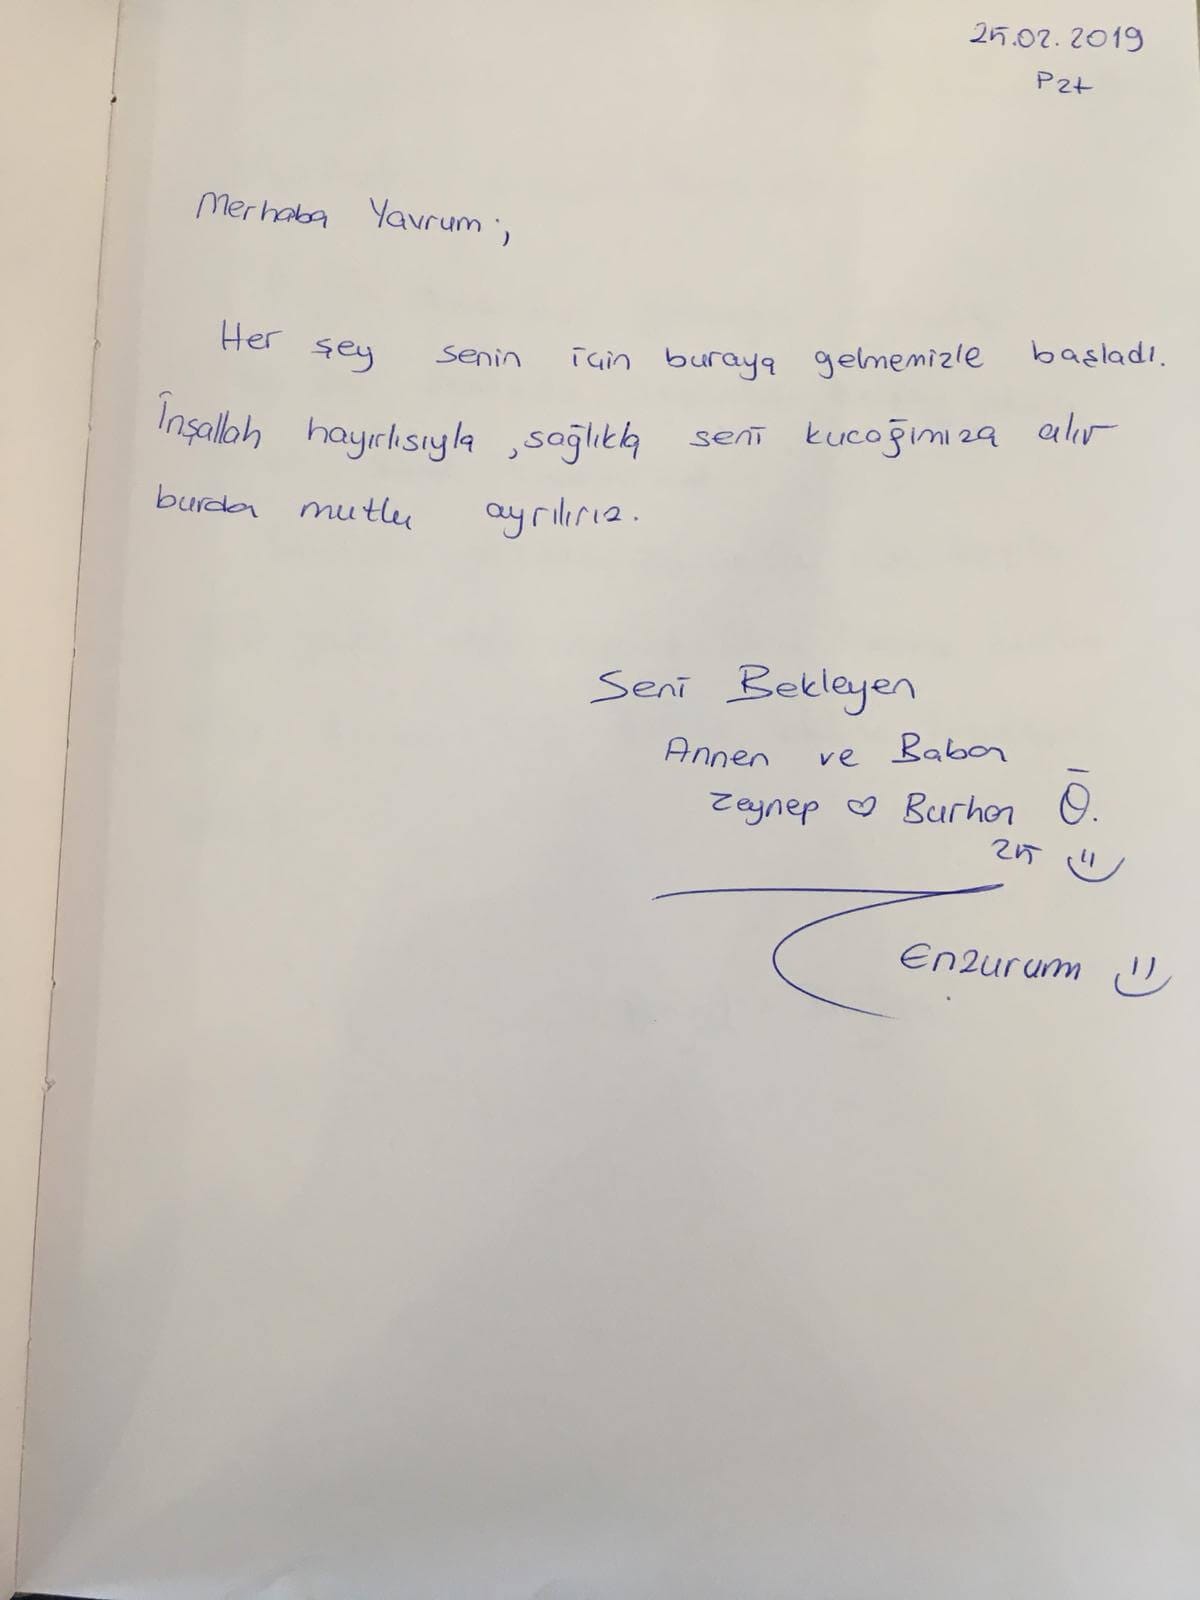 25.02.2019
Pzt
Merhaba Yavrum;
Her şey senin için buraya gelmemizle başladı.
İnşallah hayırlısıyla, sağlıkla seni kucağımıza alır
burdan mutlu ayrılırız.
Seni Bekleyen
Annen ve Baban
Zeynep ♡ Burhan Ö.
25
Erzurum